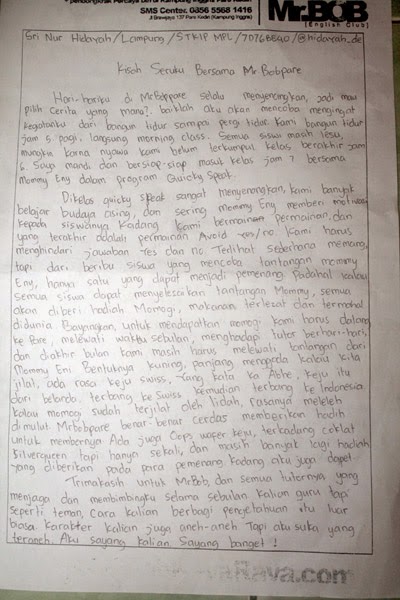 Pendongkrak Percaya Diri di Kampung Inggris Pare Kediri
SMS Center. 0856 5568 1416
Jl Brawijaya 137 Pare Kediri (Kampung Inggris)
Mr.BOB
[English Club]
Sri Nur Hidayah/Lampung/STKIP MPL/7076BE40/@hidayah_de
Kisah Seruku Bersama Mr Bobpare
Hari-hariku di MrBobpare selalu menyenangkan, jadi mau
pilih cerita yang mana?. baiklah aku akan mencoba mengingat
kegiatanku dari bangun tidur sampai pergi tidur. Kami bangun tidur
jam 5 pagi, langsung morning class. Semua siswa masih lesu,
mungkin karna nyawa kami belum terkumpul kelas berakhir jam
6. Saya mandi dan bersiap-siap masuk kelas jam 7 bersama
Mommy Eny dalam program Quicky Speak.
Dikelas quicky speak sangat menyenangkan, kami banyak
belajar budaya asing, dan sering mommy Eny memberi motivasi
kepada siswanya kadang kami bermain permainan, dan
yang terakhir adalah permainan Avoid yes/no. Kami harus
menghindari jawaban Yes dan no. Terlihat sederhana memang,
tapi dari beribu siswa yang mencoba tantangan mommy
Eny, hanya satu yang dapat menjadi pemenang. Padahal kalau
semua siswa dapat menyelesaikan tantangan Mommy, semua
akan diberi hadiah Momogi, makanan terlezat dan termahal
didunia. Bayangkan, untuk mendapatkan momogi kami harus datang
ke Pare, melewati waktu sebulan, menghadapi tutor berhari-hari,
dan diakhir bulan kami masih harus melewati tantangan dari
Mommy Eni. Bentuknya kuning, panjang merepeda kalau kita
jilat, ada rasa keju swiss. Yang kata ka Abhe, keju itu
dari belanda, terbang ke Swiss kemudian terbang ke Indonesia.
kalau momogi sudah terjilat oleh lidah, rasanya meleleh
dimulut. MrBobpare benar-benar cerdas memberikan hadiah
untuk membernya Ada juga Cips waper keju, terkadang coklat
Silverqueen tapi hanya sekali, dan masih banyak lagi hadiah
yang diberikan pada para pemenang, kadang aku juga dapet.
Trimakasih untuk Mr Bob, dan semua tuternya yang
menjaga dan membimbingku selama sebulan kalian guru tapi
seperti teman, Cara kalian berbagi pengetahuan itu luar
biasa. Karakter kalian juga aneh-aneh Tapi aku suka yang
teraneh. Aku sayang kalian. Sayang banget !
Raya.com